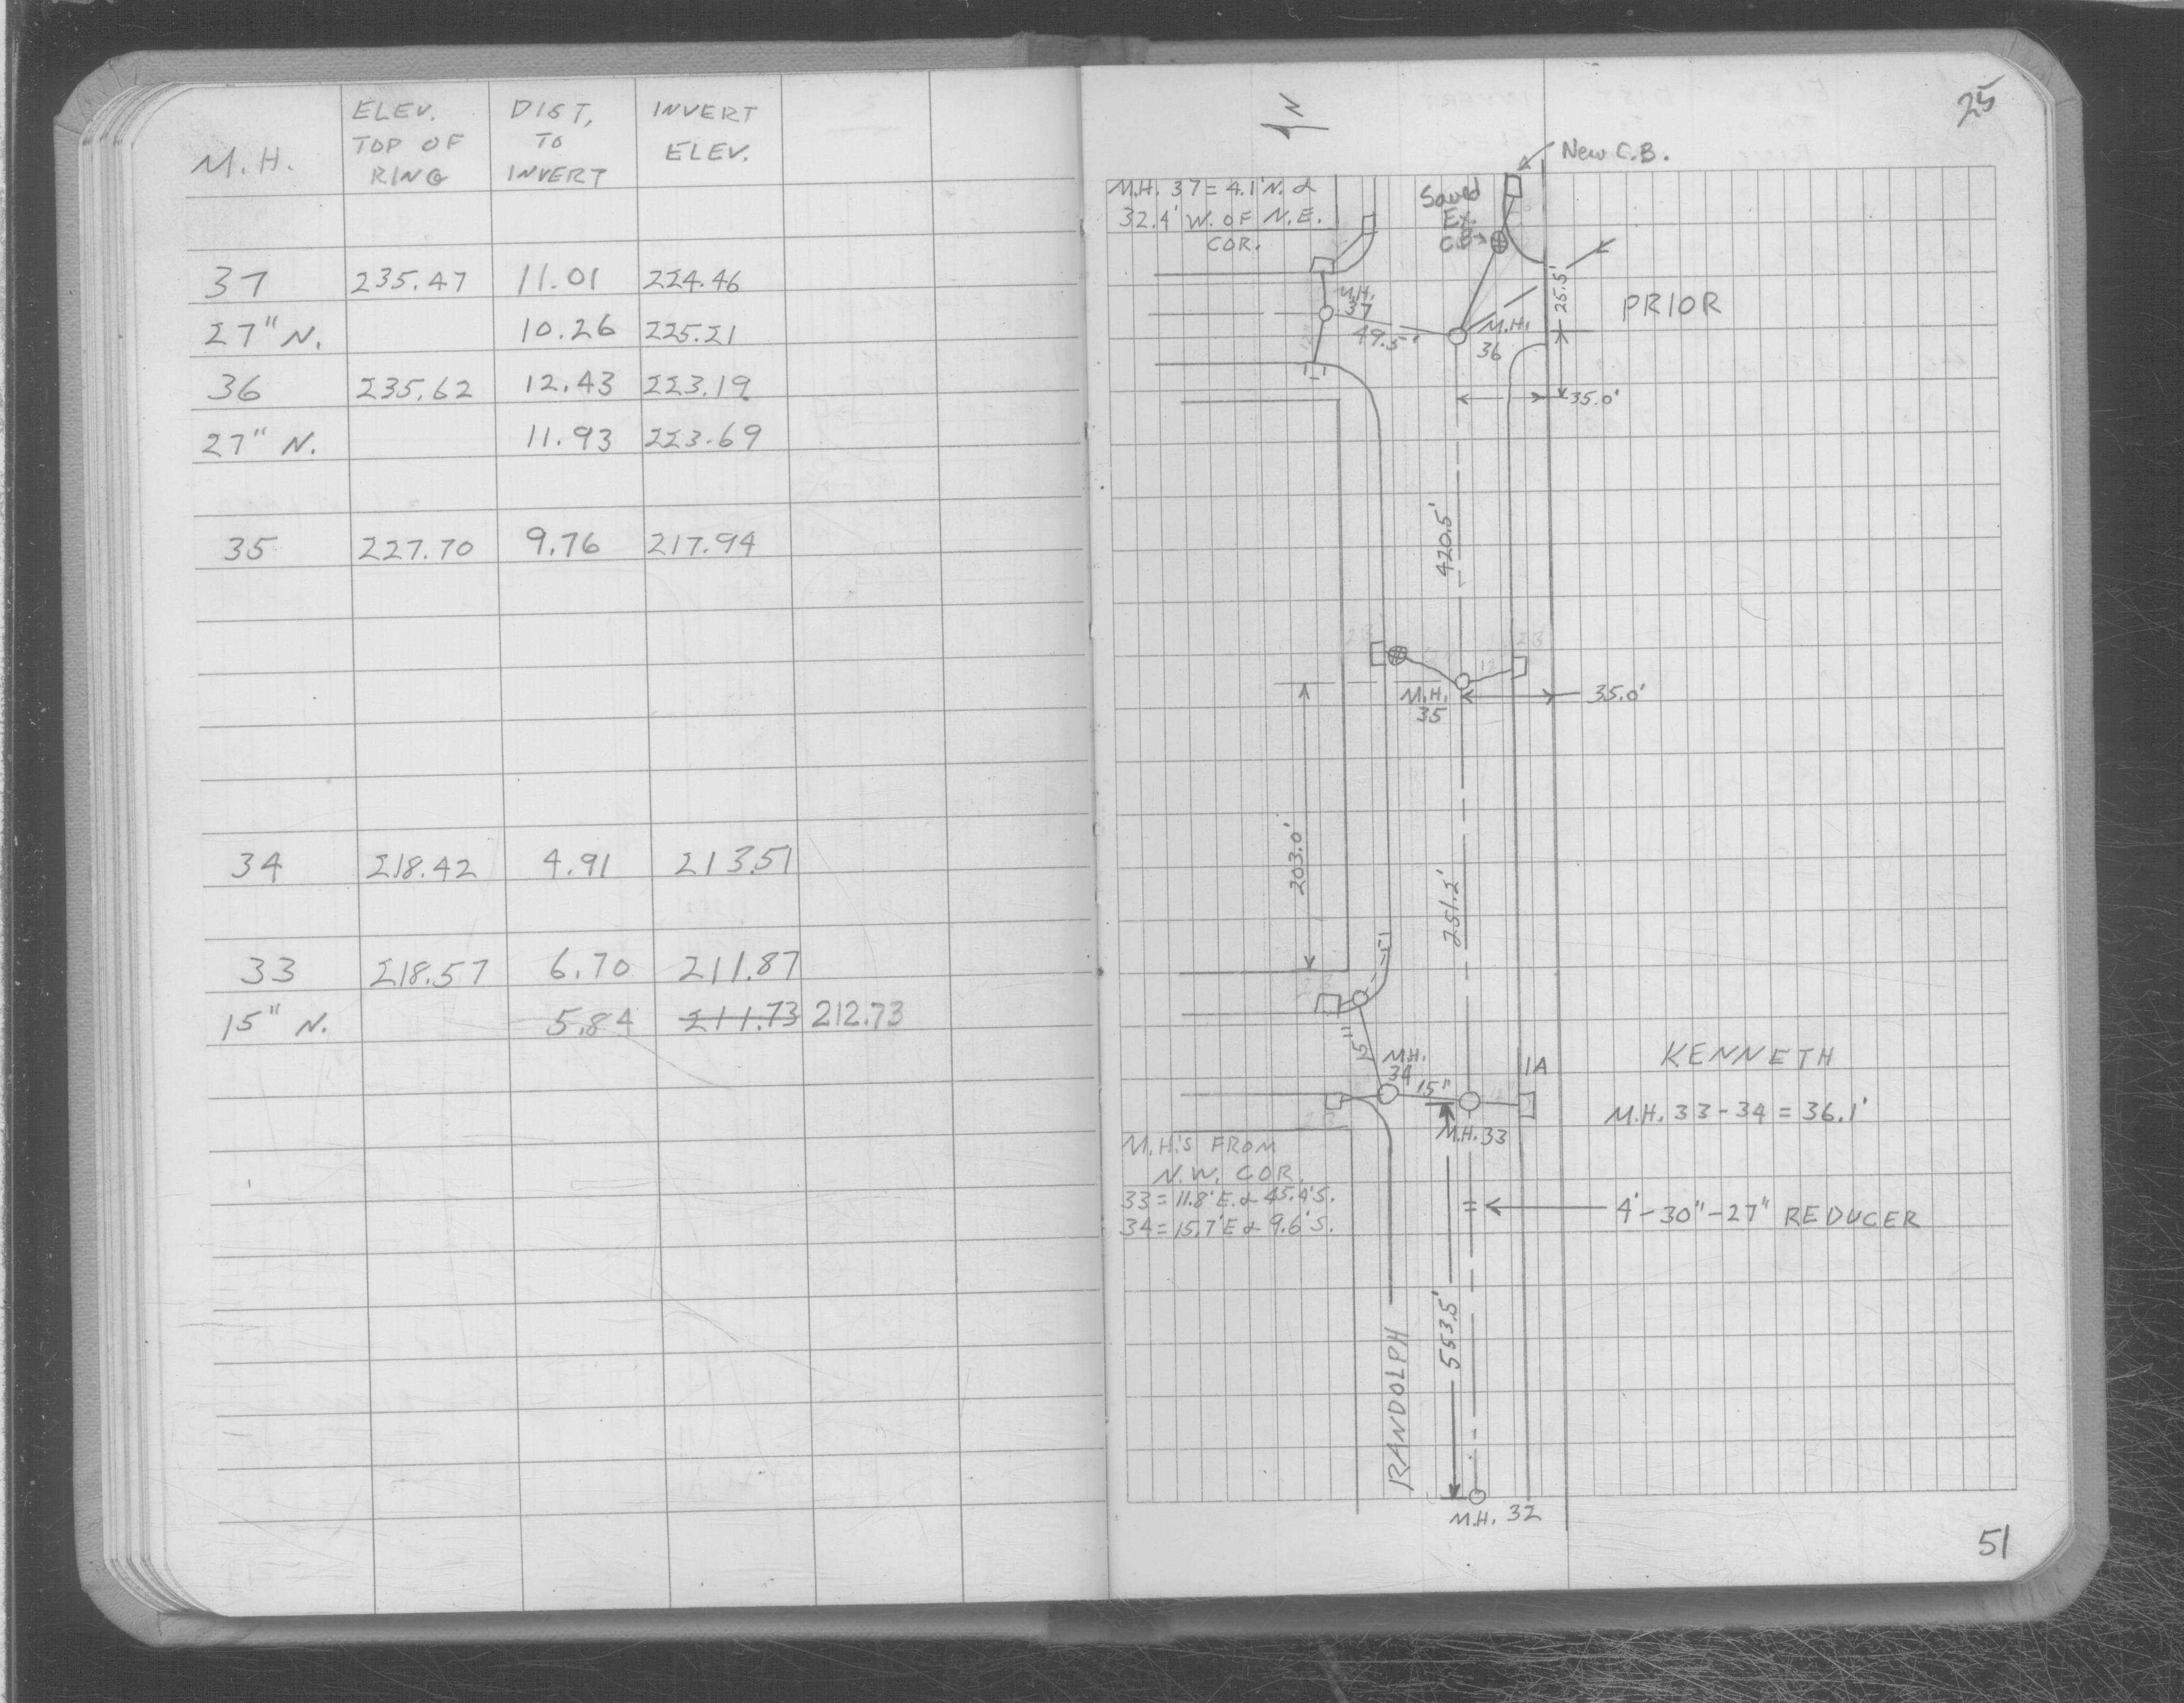 M.H. ELEV. TOP OF RING DIST. TO INVERT INVERT ELEV.
37 235.47 11.01 224.46
27" N. 10.26 225.21
36 235.62 12.43 223.19
27" N. 11.93 223.69
35 227.70 9.76 217.94
34 218.42 4.91 213.51
33 218.57 6.70 211.87
15" N. 5.84 211.73 212.73
25
N
New C.B.
M.H. 37 = 4.1' N. &
32.4' W. OF N.E.
COR.
Saved
Ex.
C.B.
M.H.
37
49.5'
M.H.
36
25.5'
PRIOR
35.0'
420.5'
12
M.H.
35
35.0'
203.0'
251.2'
15"
15"
M.H.
34
15"
1A
KENNETH
M.H. 33 - 34 = 36.1'
M.H. 33
M.H.'S FROM
N.W. COR.
33 = 11.8' E. & 45.4' S.
34 = 15.7' E & 9.6' S.
4' - 30" - 27" REDUCER
553.5'
RANDOLPH
M.H. 32
51